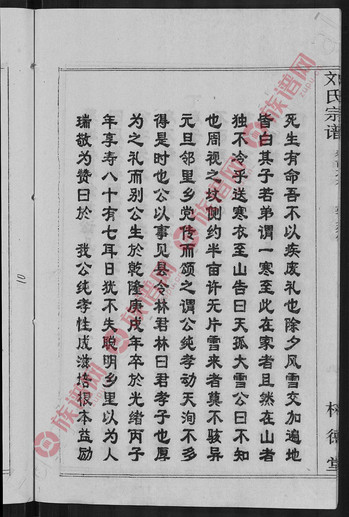 刘氏宗谱
死生有命吾不以疾废礼也除夕风雪交加遍地
皆白其子若弟谓一寒至此在家者且然在山者
独不冷乎送寒衣至山告曰天孤大雪公曰不知
也周视之坟侧约半亩许无片雪来者莫不骇异
元旦邻里乡党传而颂之谓公纯孝动天洵不多
得是时也公以事见县令林君林曰君孝子也厚
为之礼而别公生於乾隆庚戌年卒於光绪丙子
年享寿八十有七耳目犹不失聪明乡里以为人
瑞敬为赞曰於 我公纯孝性成滋培根本益励
德堂
10
族谱网